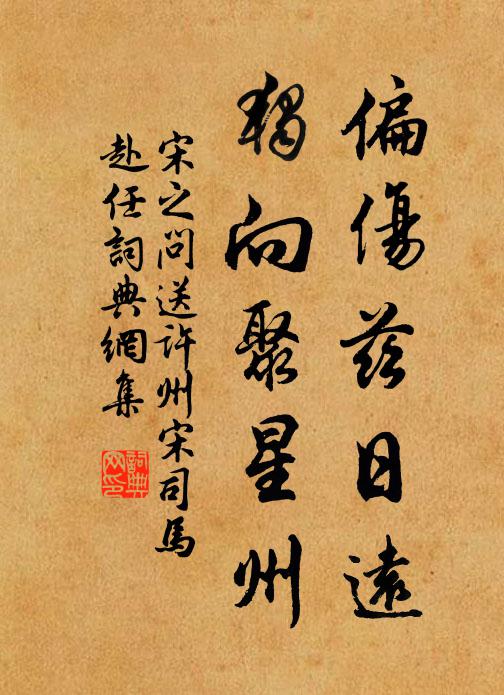 偏傷茲日遠
獨向聚星州
宋之問送許州宋司馬
赴任詞典網集
詞典
网印